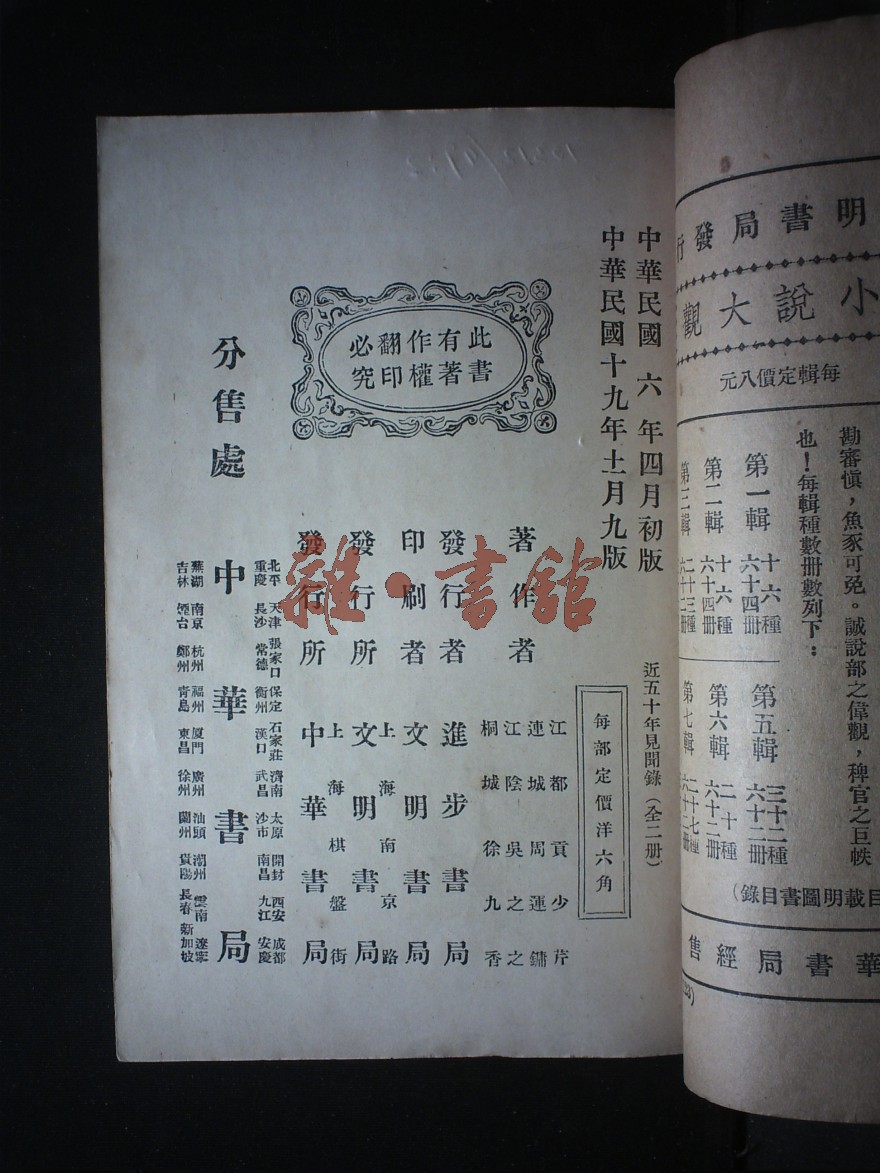 明書局發行
小說大觀
每輯定價八元
勘審慎，魚豕可免。誠說部之偉觀，稗官之巨帙
也！每輯種數冊數列下：
第一輯 十六種 六十四冊
第二輯 十六種 六十四冊
第三輯 二十三種
第五輯 三十二種 六十二冊
第六輯 二十種 六十二冊
第七輯 二十七種
目載明圖書目錄）
華書局經售
中華民國六年四月初版
中華民國十九年十一月九版
此書有著作權翻印必究
近五十年見聞錄（全二册）
每部定價洋六角
著作者
江都貢少芹
連城周運鏞
江陰吳之之
桐城徐九香
發行者 進步書局
印刷者 文明書局
上海南京路
發行所 文明書局
上海棋盤街
發行所 中華書局
分售處 中華書局
北平 天津 張家口 保定 石家莊 濟南 太原 開封 西安 成都
重慶 長沙 常德 衡州 漢口 武昌 沙市 南昌 九江 安慶
蕪湖 南京 杭州 福州 廈門 廣州 汕頭 潮州 雲南 遼寧
吉林 煙台 鄭州 青島 東昌 徐州 蘭州 貴陽 長春 新加坡
雜·書館